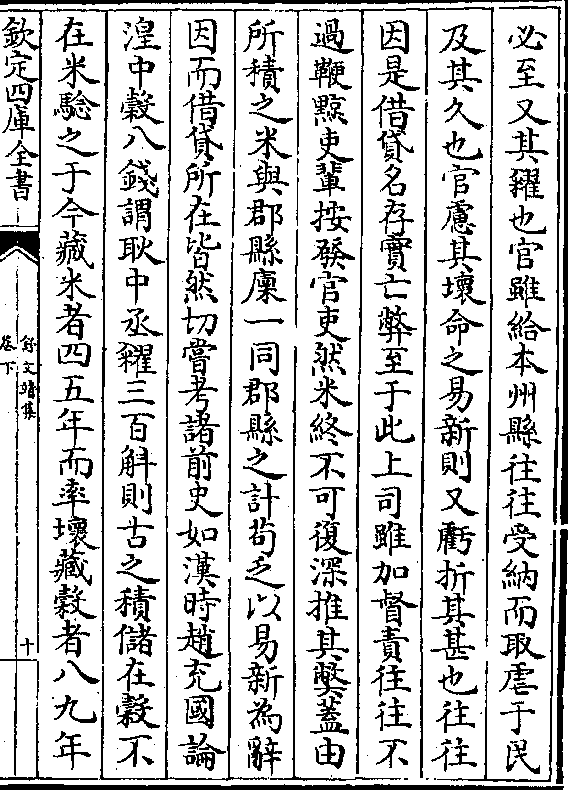 必至又其糴也官雖給本州縣往往受納而取虐于民
及其久也官慮其壞命之易新則又虧折其甚也往往
因是借貸名存實亡弊至于此上司雖加督責往往不
過鞭黥吏輩按發官吏然米終不可復深推其弊蓋由
所積之米與郡縣廩一同郡縣之計茍乏以易新為辭
因而借貸所在皆然切嘗考諸前史如漢時趙充國論
湟中糓八錢謂耿中丞糴三百斛則古之積儲在糓不
在米驗之于今藏米者四五年而率壞藏糓者八九年
欽定四庫全書
舒文靖集
卷下
十